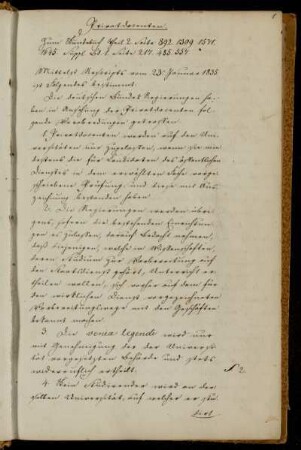 Privatdocenten.
Zum Handbuch Theil 2. Seite 892. 1309. 1571.
1645. Suppl. Bd. 1. Seite 217. 485. 557.
Mittelst Rescripts vom 23. Januar 1835
ist Folgendes bestimmt:
Die deutschen Bundes Regierungen ha-
ben in Ansehung der Privatdocenten fol-
gende Verabredungen getroffen:
1. Privatdocenten werden auf den Uni-
versitäten nur zugelassen, wenn sie min-
destens die für Candidaten des öffentlichen
Dienstes in dem erwählten Fache vorge-
schriebene Prüfung, und diese mit Aus-
zeichnung bestanden haben.
2. Die Regierungen werden übri-
gens, sofern die bestehenden Einrichtun-
gen es zulassen, darauf Bedacht nehmen,
daß diejenigen, welche in Wissenschaften,
deren Studium zur Vorbereitung auf
den Staatsdienst gehört, Unterricht er-
theilen wollen, sich vorher auf dem für
den wirklichen Dienst vorgezeichneten
Vorbereitungswege mit den Geschäften
bekannt machen.
3. Die venia legendi wird nur
mit Genehmigung der der Universi-
tät vorgesetzten Behörde und stets
widerruflich ertheilt.
4. Kein Studierender wird an der-
selben Universität, auf welcher er stu-
dirt